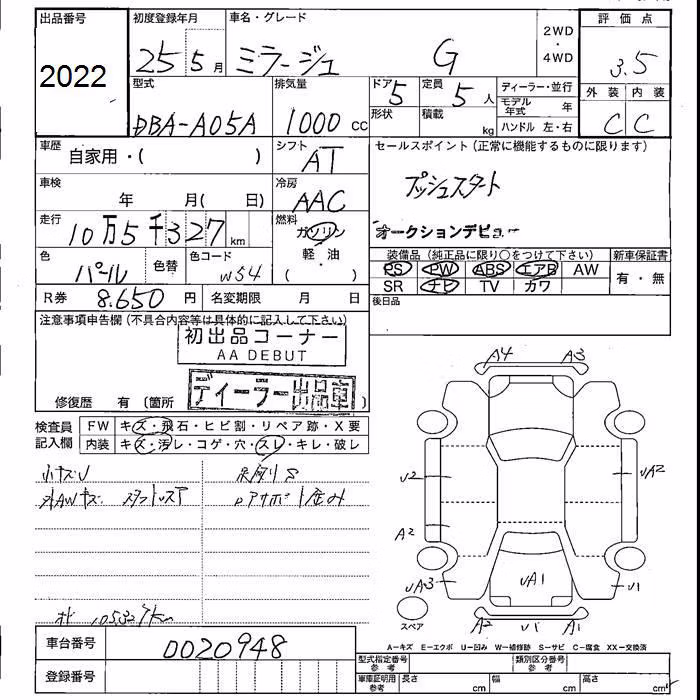 出品番号
2022
初度登録年月
25 5月
車名・グレード
ミラージュ G
2WD
・
4WD
評価点
3.5
外装 内装
C C
型式
DBA-A05A
排気量
1000 CC
ドア 5
形状
定員 5 人
積載 kg
ディーラー・並行
モデル年式 年
ハンドル 左・右
車歴
自家用・( )
シフト
AT
セールスポイント(正常に機能するものに限ります)
プッシュスタート
オークションデビュー
車検
年 月( 日)
冷房
AAC
走行
10万5千327km
燃料
ガソリン
軽・油
( )
色
パール
色替
色コード
W54
装備品(純正品に限り○をつけて下さい)
PS PW ABS エアB AW
SR ナビ TV カワ
新車保証書
有・無
R券 8.650 円
名変期限 月 日
後日品
注意事項申告欄(不具合内容等は具体的に記入して下さい)
初出品コーナー
AA DEBUT
ディーラー出品車
修復歴 有(箇所 )
検査員
記入欄
FW キズ・飛石・ヒビ割・リペア跡・X要
内装 キズ・汚レ・コゲ・穴・スレ・キレ・破レ
A4 A3
U2 UA2
A2
UA3 UA1 U1
スペア
A2 U1 A1
A-キズ E-エクボ U-凹み W-補修跡 S-サビ C-腐食 XX-交換済
105327km
車台番号
0020948
登録番号
型式指定番号
参考
類別区分番号
参考
車庫証明用
参考
長さ cm
幅 cm
高さ cm